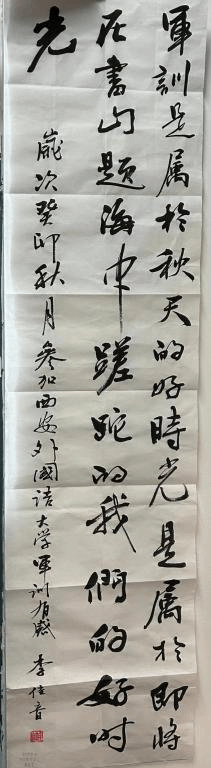 軍訓是属於秋天的好時光是属於即將
在書山題海中蹉跎的我們的好时
光
歲次癸卯秋月參加西安外國語大学軍訓有感 李佳音